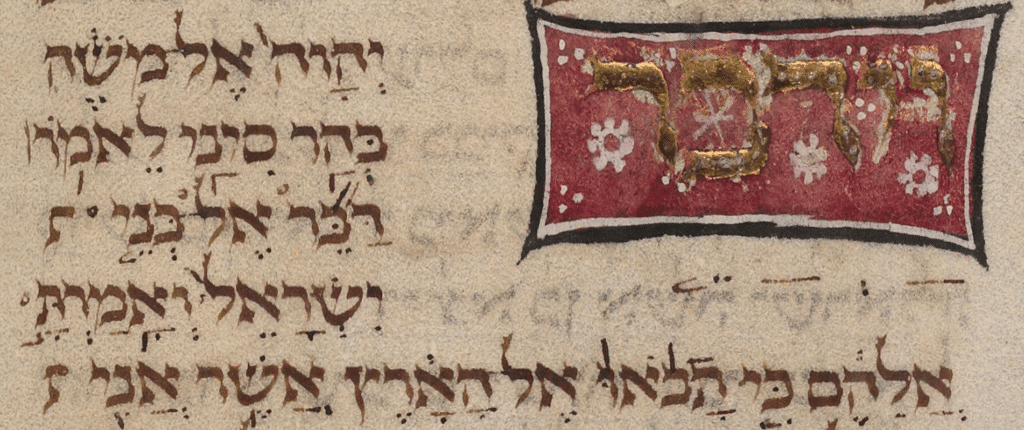 וידבר
יְהוָה אֶל מֹשֶׁה
בְּהַר סִינַי לֵאמֹר
דַּבֵּר אֶל בְּנֵי
יִשְׂרָאֵל וְאָמַרְתָּ
אֲלֵהֶם כִּי תָבֹאוּ אֶל הָאָרֶץ אֲשֶׁר אֲנִי